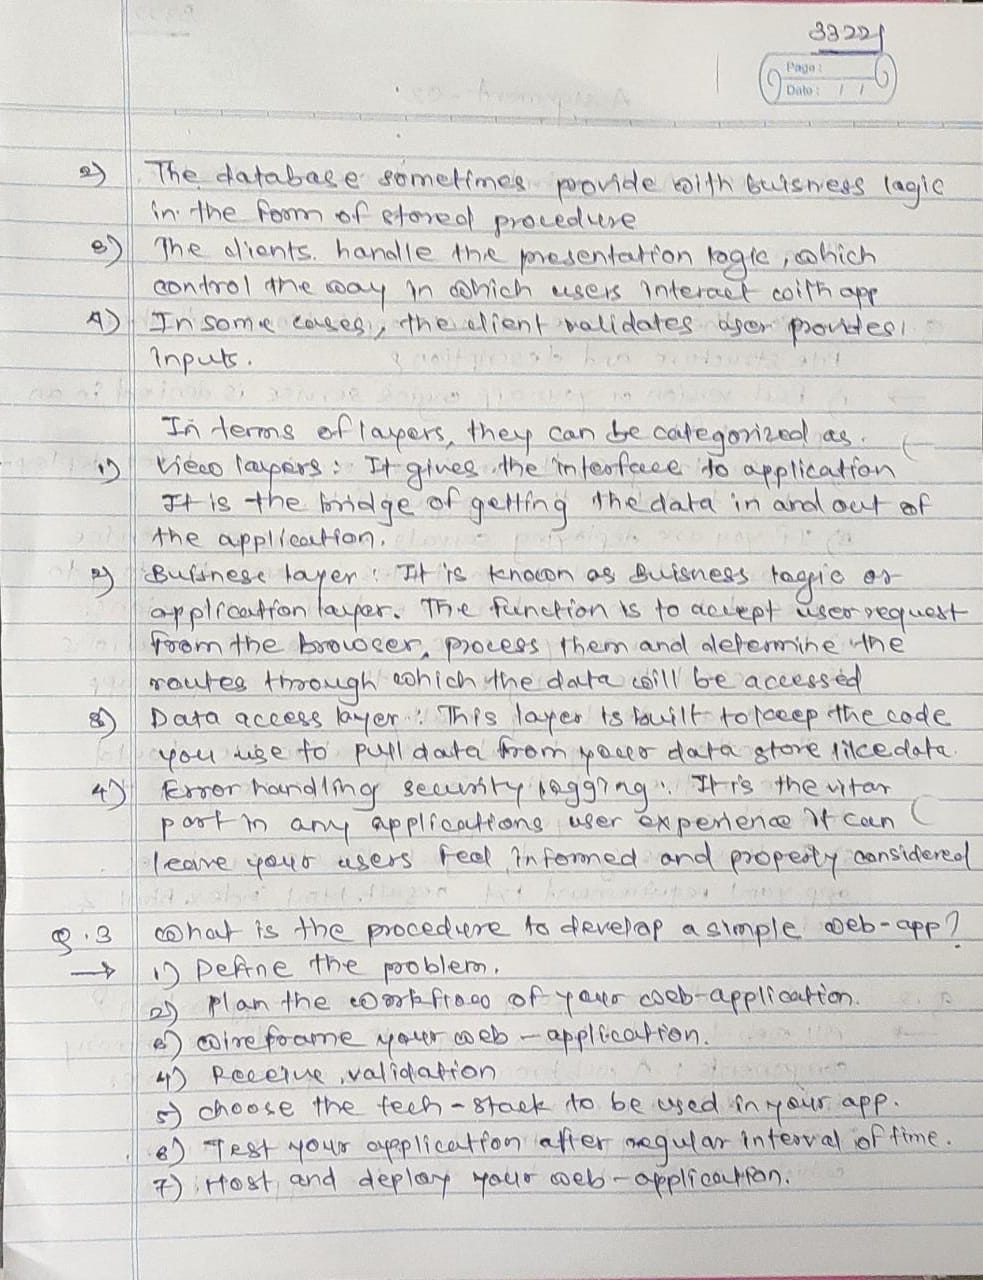 33221
Page :
Date : / /
2) The database sometimes provide with buisness logic
in the form of stored procedure
3) The clients handle the presentation logic, which
control the way in which users interact with app
4) In some cases, the client validates user provides
inputs.
In terms of layers, they can be categorized as.
1) View layers : It gives the interface to application
It is the bridge of getting the data in and out of
the application.
2) Buisness layer : It is known as Buisness logic or
application layer. The function is to accept user request
from the browser, process them and determine the
routes through which the data will be accessed
3) Data access layer : This layer is built to keep the code
you use to pull data from your data store like data.
4) Error handling security logging : It is the vital
part in any applications user experience it can
leave your users feel informed and properly considered
Q.3 What is the procedure to develop a simple web-app?
→ 1) Define the problem.
2) Plan the workflow of your web-application.
3) Wireframe your web-application.
4) Receive validation
5) choose the tech-stack to be used in your app.
6) Test your application after regular interval of time.
7) Host and deploy your web-application.